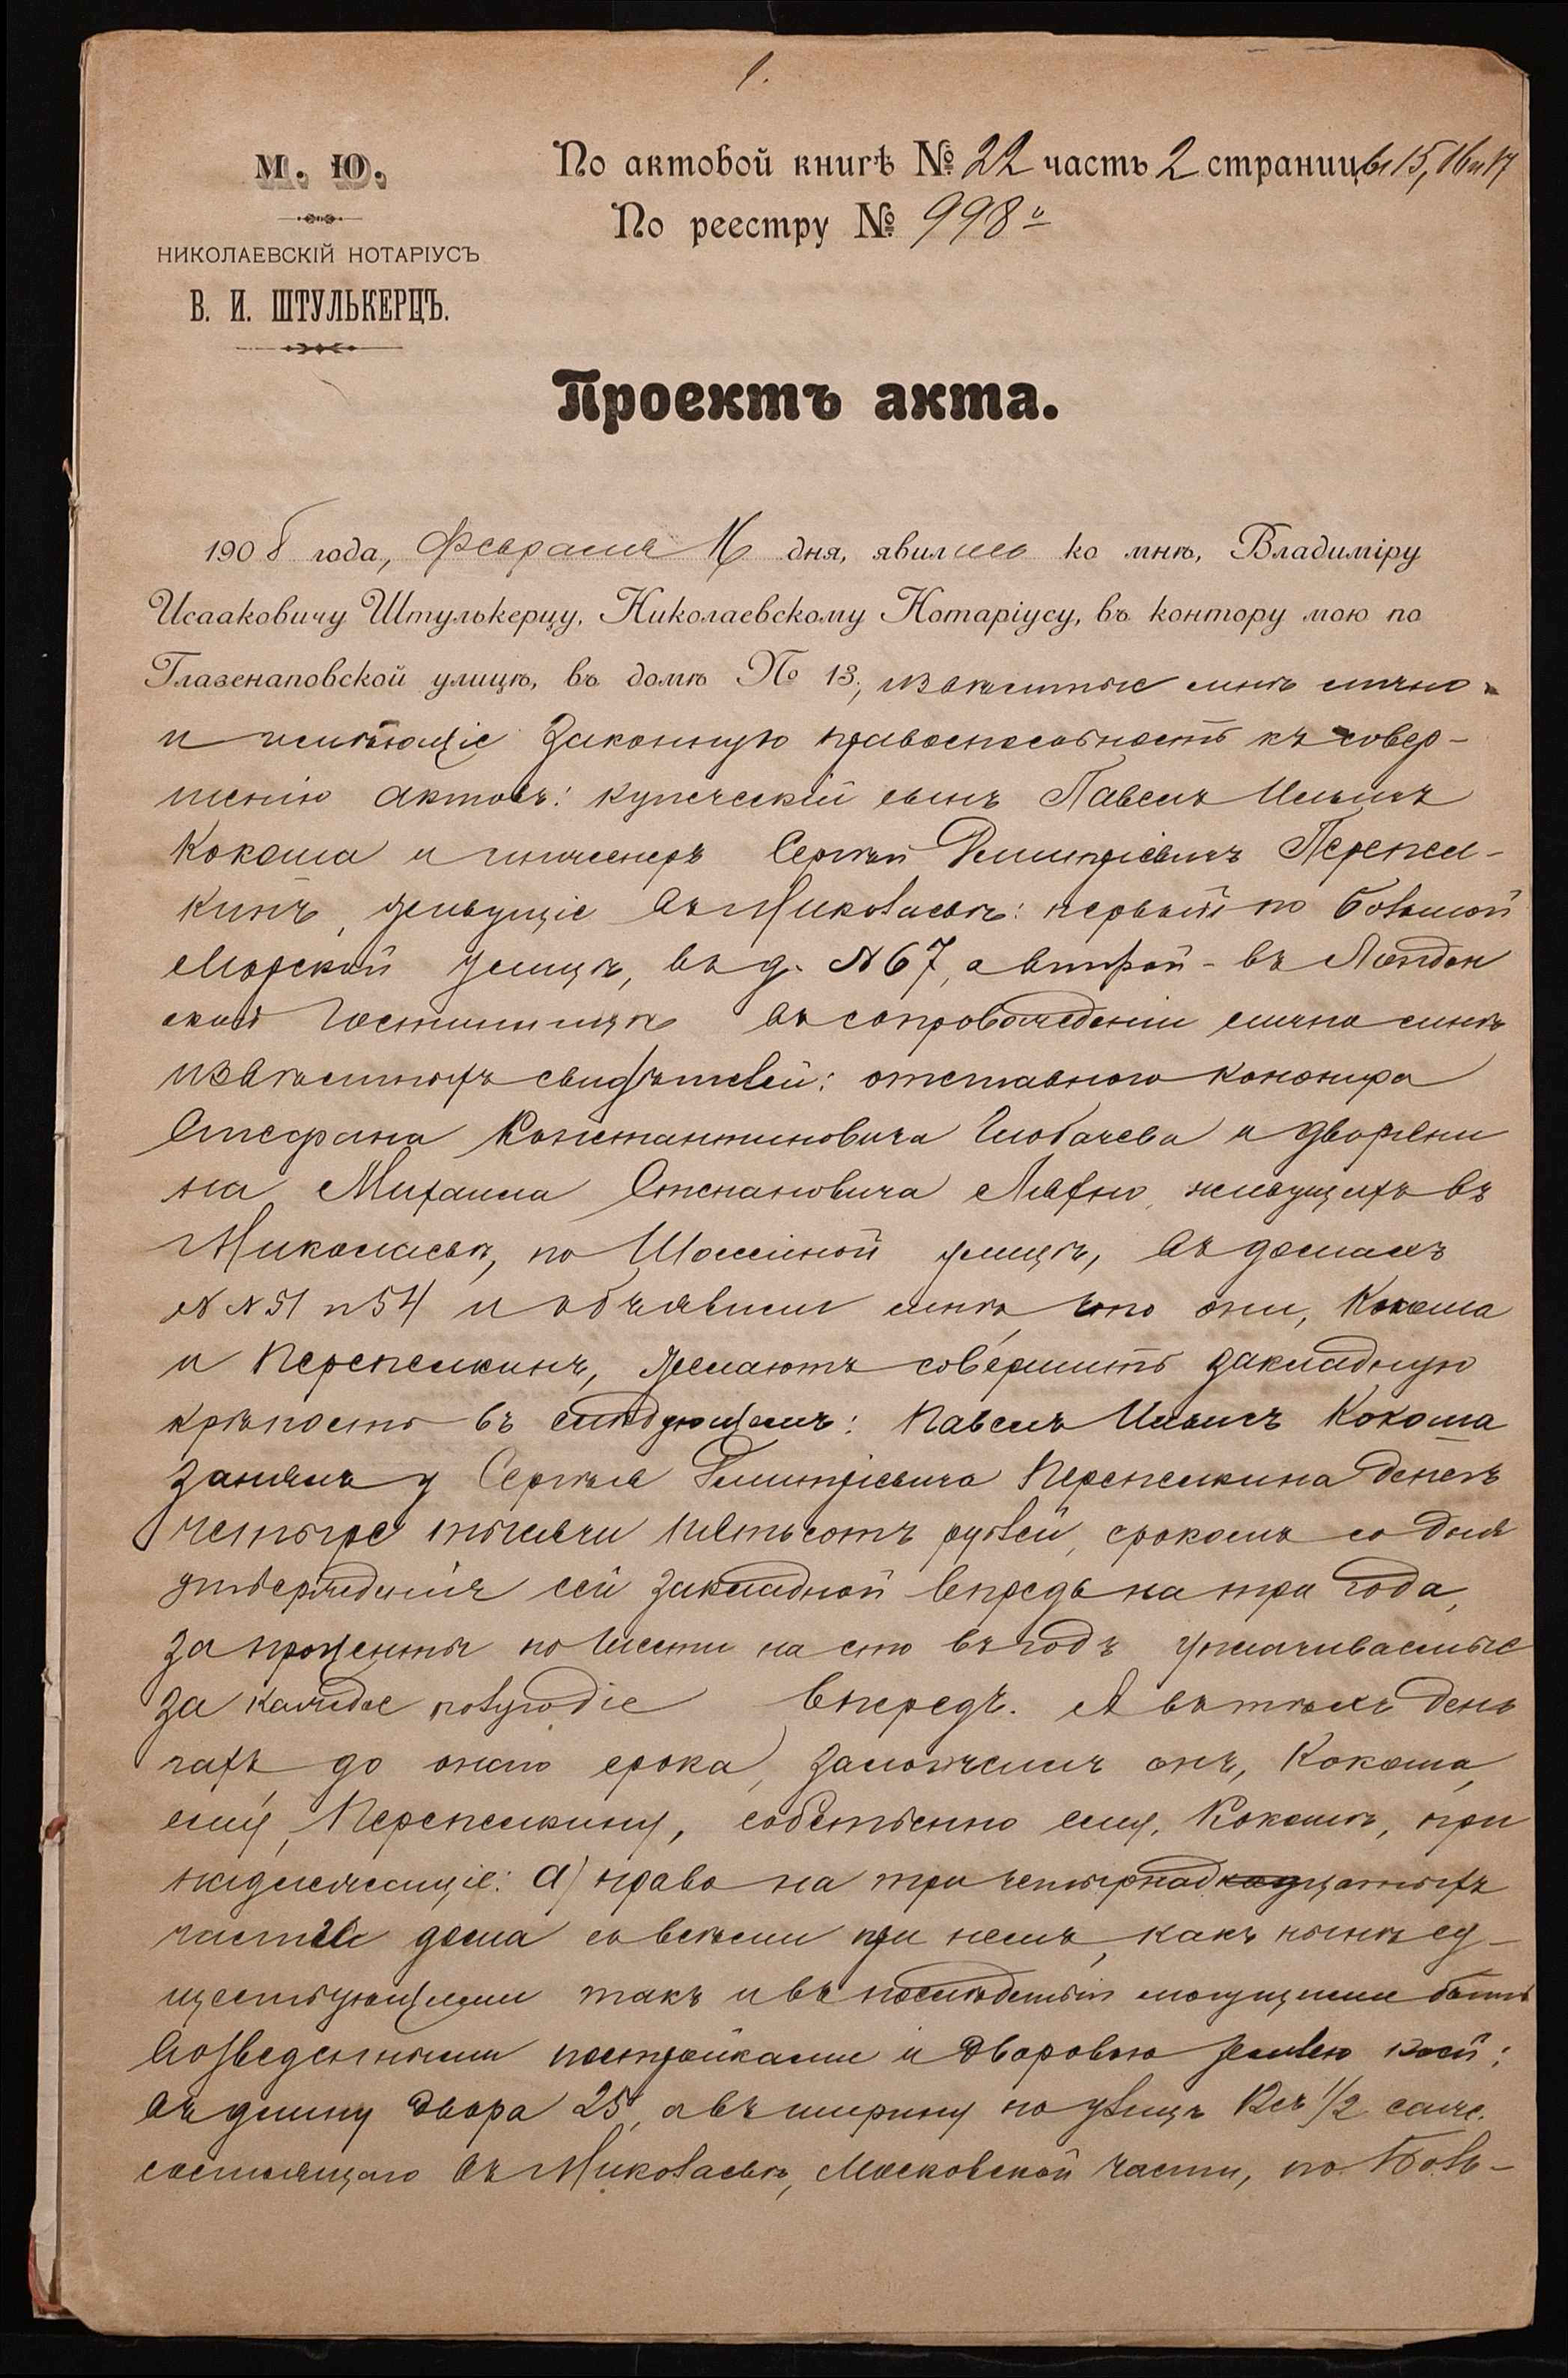 1.
М. Ю.
По актовой книгѣ № 22 часть 2 страницы 15, 16 и 17
По реестру № 998
НИКОЛАЕВСКІЙ НОТАРІУСЪ
В. И. ШТУЛЬКЕРЦЪ.
Проектъ акта.
1908 года, Февраля 16 дня, явились ко мнѣ, Владиміру
Исааковичу Штулькерцу, Николаевскому Нотаріусу, въ контору мою по
Глазенаповской улицѣ, въ домѣ № 13, извѣстные мнѣ лично
и имѣющіе законную правоспособность къ совер-
шенію актовъ: купеческій сынъ Павелъ Ильичъ
Кокоша и инженеръ Сергѣй Дмитріевичъ Перепел-
кинъ, живущіе въ Николаевѣ: первый по Большой
Морской улицѣ, въ д. № 67, а второй - въ Лондон
ской гостинницѣ въ сопровожденіи лично мнѣ
извѣстныхъ свидѣтелей: отставного канонира
Стефана Константиновича Глобачева и дворяни
на Михаила Степановича живущихъ въ
Николаевѣ, по улицѣ, въ домахъ
№ № 51 и 54 и объявили мнѣ, что они, Кокоша
и Перепелкинъ, желаютъ совершить закладную
крѣпость въ слѣдующемъ: Павелъ Ильичъ Кокоша
занялъ у Сергѣя Дмитріевича Перепелкина денегъ
четыре тысячи пятьсотъ рублей, срокомъ со дня
утвержденія сей закладной впредь на три года,
за проценты по шести на сто въ годъ уплачиваемые
за каждое полугодіе впередъ. А въ тѣхъ день
гахъ до онаго срока, заложилъ онъ, Кокоша,
ему, Перепелкину, собственно ему, Кокошѣ, при
надлежащіе: а) права на три четырнадцатыхъ
частей дома со всѣми при немъ, какъ нынѣ су-
ществующими такъ и въ послѣдствіи могущими быть
возведенными постройками и дворовою землею коей:
въ длину двора 25, а въ ширину по улицѣ 12 1/2 саж.
состоящаго въ Николаевѣ, Московской части, по Боль-